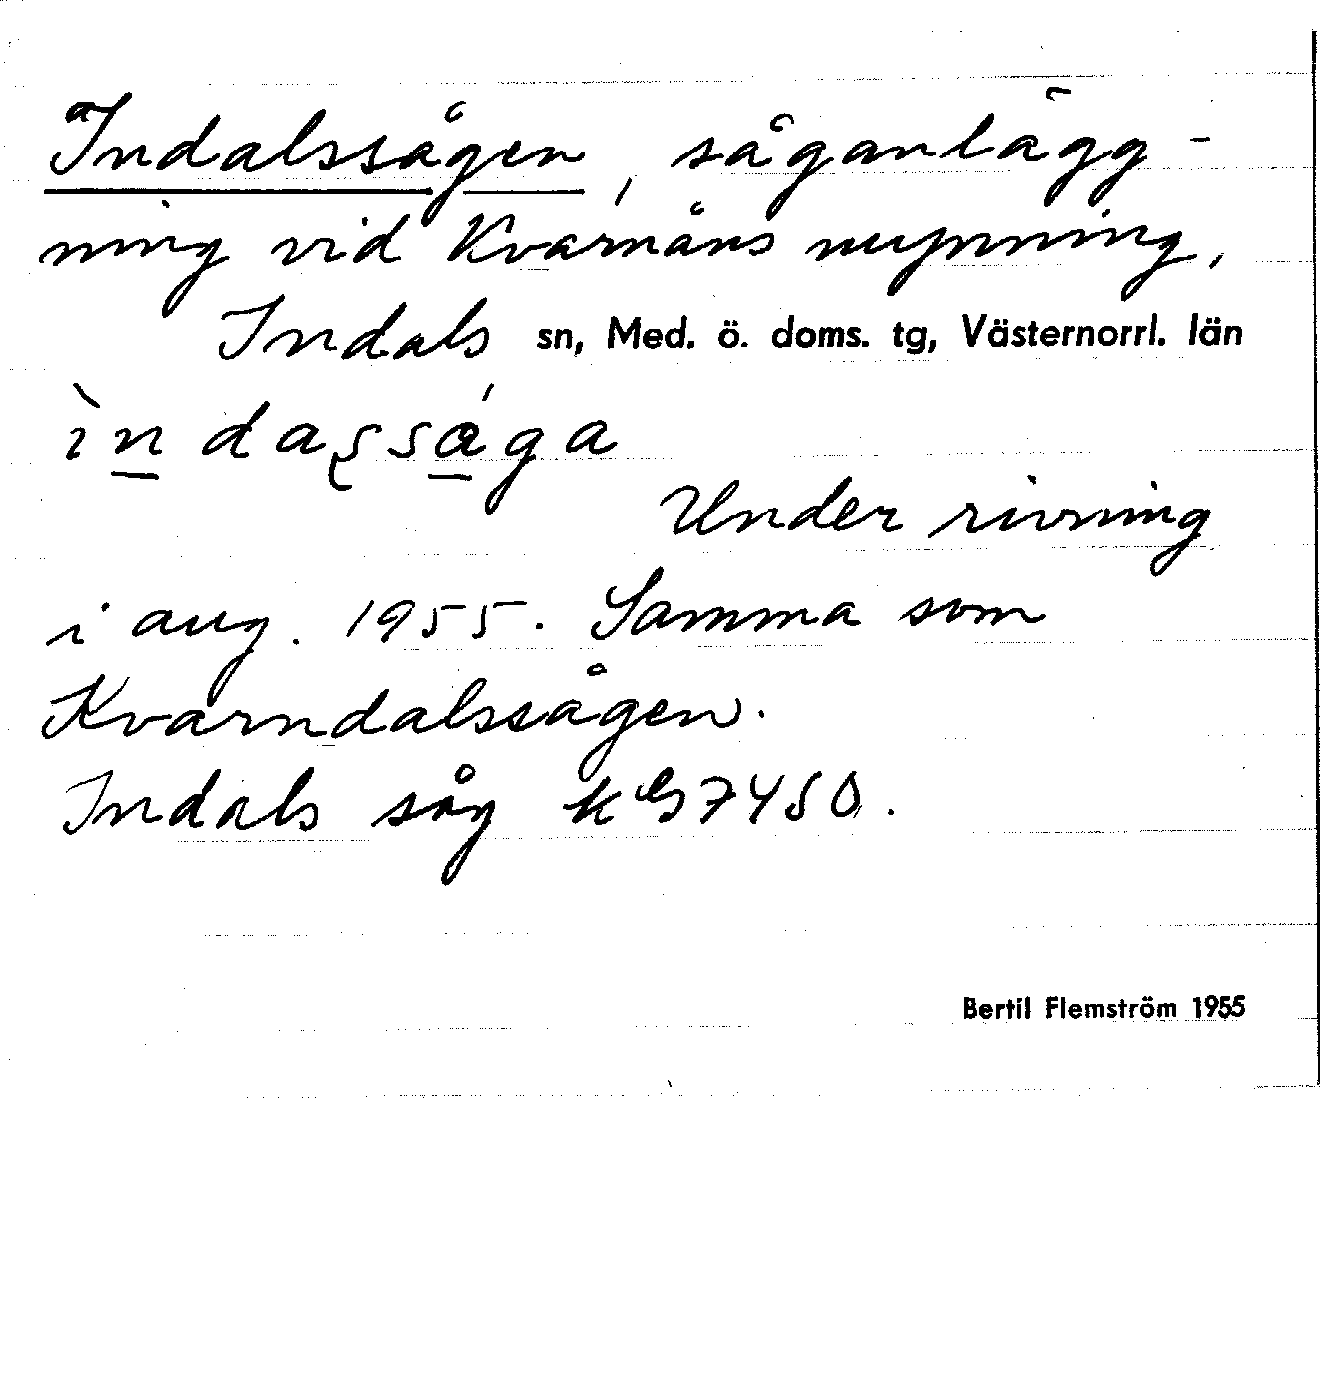 Indalssågen, såganlägg-
ning vid Kvarnåns mynning,
Indals sn, Med. ö. doms. tg, Västernorrl. län
Under rivning
i aug. 1955. Samma som
Kvarndalssågen.
Indals såg
Bertil Flemström 1955